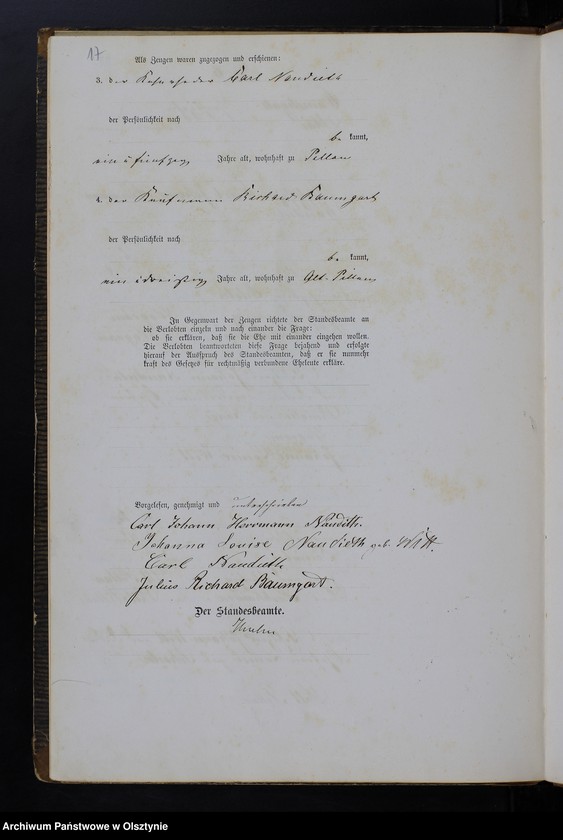 17
Als Zeugen waren zugezogen und erschienen:
3. der Carl Naudieth
der Persönlichkeit nach
be kannt,
ein u fünfzig Jahre alt, wohnhaft zu Pillau
4. der Kaufmann Richard Baumgart
der Persönlichkeit nach
be kannt,
ein u dreißig Jahre alt, wohnhaft zu Alt-Pillau
In Gegenwart der Zeugen richtete der Standesbeamte an
die Verlobten einzeln und nach einander die Frage:
ob sie erklären, daß sie die Ehe mit einander eingehen wollen.
Die Verlobten beantworteten diese Frage bejahend und erfolgte
hierauf der Ausspruch des Standesbeamten, daß er sie nunmehr
kraft des Gesetzes für rechtmäßig verbundene Eheleute erkläre.
Vorgelesen, genehmigt und unterschrieben
Carl Johann Herrmann Naudieth.
Johanna Lovise Naudieth geb. Witt.
Carl Naudieth
Julius Richard Baumgart.
Der Standesbeamte.
Archiwum Państwowe w Olsztynie